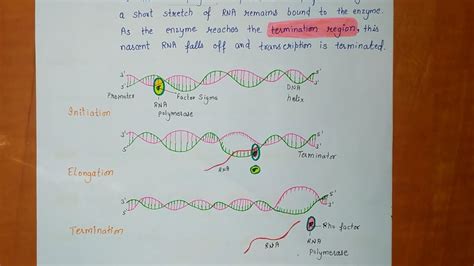 a short stretch of RNA remains bound to the enzyme.
As the enzyme reaches the termination region, this
nascent RNA falls off and transcription is terminated.
3' 5'
5' 3'
Promoter
Factor Sigma
DNA
helix
RNA
polymerase
Initiation
3' 5'
5' 3'
RNA
Terminator
Elongation
3' 5'
5' 3'
Rho factor
RNA
RNA
Polymerase
Termination